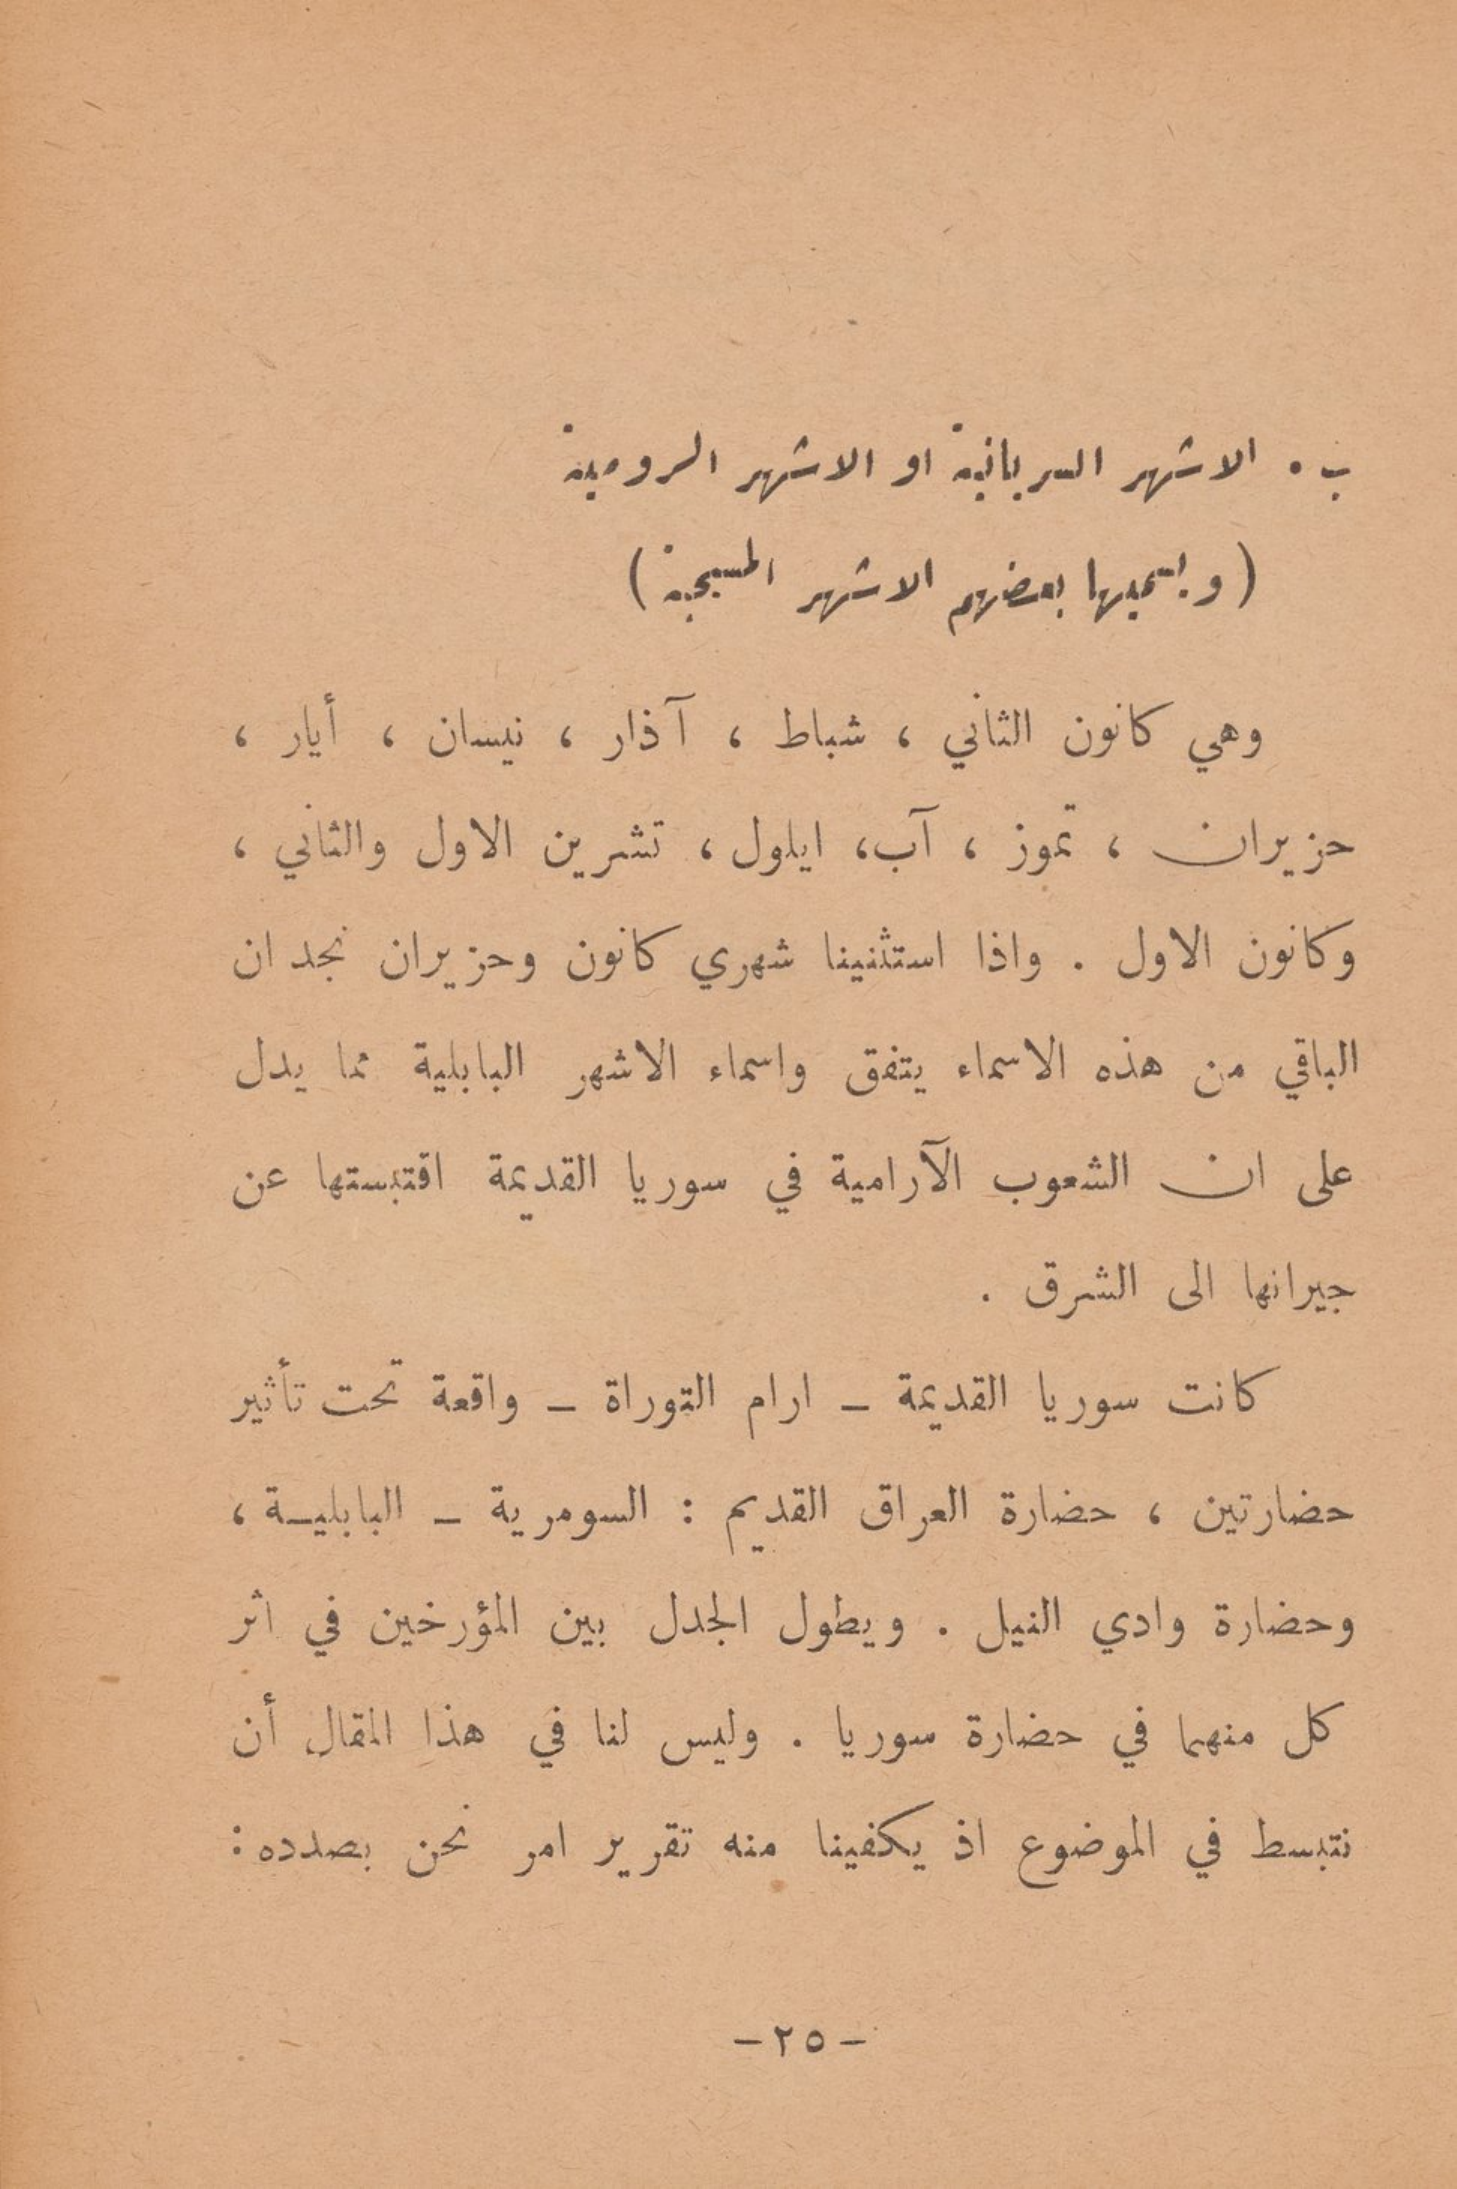 ب . الاشهر السريانية او الاشهر الرومية
( ويسميها بعضهم الاشهر المسيحية )
وهي كانون الثاني ، شباط ، آذار ، نيسان ، أيار ،
حزيران ، تموز ، آب، ايلول ، تشرين الاول والثاني ،
وكانون الاول . واذا استثنينا شهري كانون وحزيران نجد ان
الباقي من هذه الاسماء يتفق واسماء الاشهر البابلية مما يدل
على ان الشعوب الآرامية في سوريا القديمة اقتبستها عن
جيرانها الى الشرق .
كانت سوريا القديمة – ارام التوراة – واقعة تحت تأثير
حضارتين ، حضارة العراق القديم : السومرية – البابليـة ،
وحضارة وادي النيل . ويطول الجدل بين المؤرخين في اثر
كل منهما في حضارة سوريا . وليس لنا في هذا المقال أن
نتبسط في الموضوع اذ يكفينا منه تقرير امر نحن بصدده :
– ٢٥ –